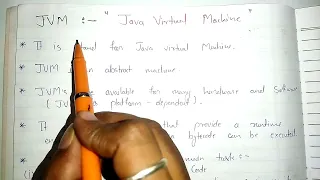 JVM :- " Java Virtual Machine "
* It is for Java virtual Machine.
* JVM an abstract machine.
* JVM's are available for many hardware and Software
( JVM platform - dependent ).
* It that provide a runtime
in bytecode can be executed.
main tasks :-
Code